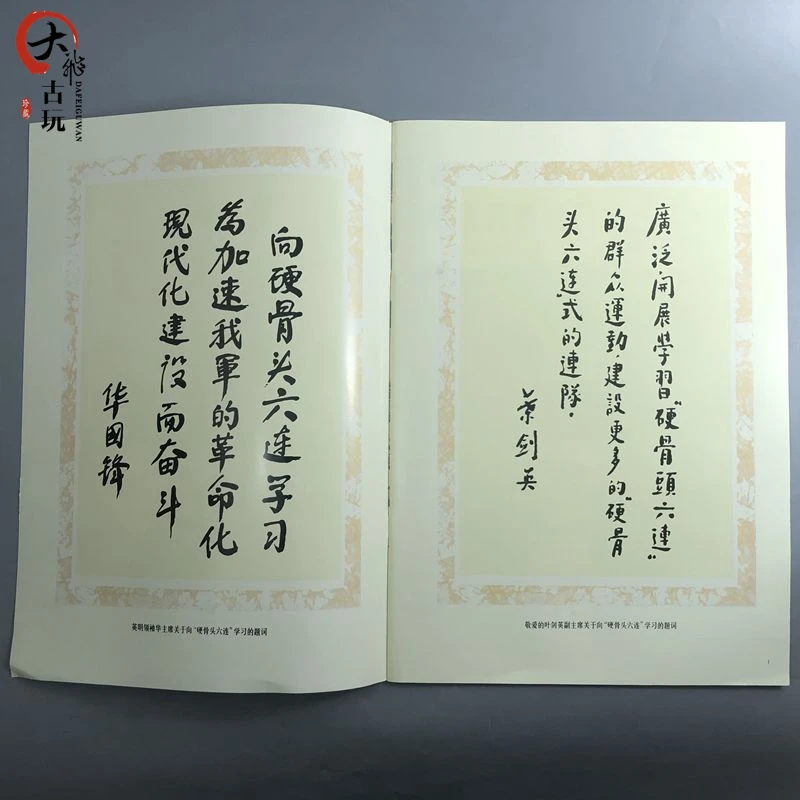 大飛
古玩
DAFEIGUWAN
珍藏
向硬骨头六连学习
為加速我軍的革命化
現代化建设而奋斗
华國锋
英明领袖华主席关于向“硬骨头六连”学习的题词
廣泛開展學習“硬骨頭六連”
的群众運動，建設更多的“硬骨
头六连”式的連隊。
葉剑英
敬爱的叶剑英副主席关于向“硬骨头六连”学习的题词
1